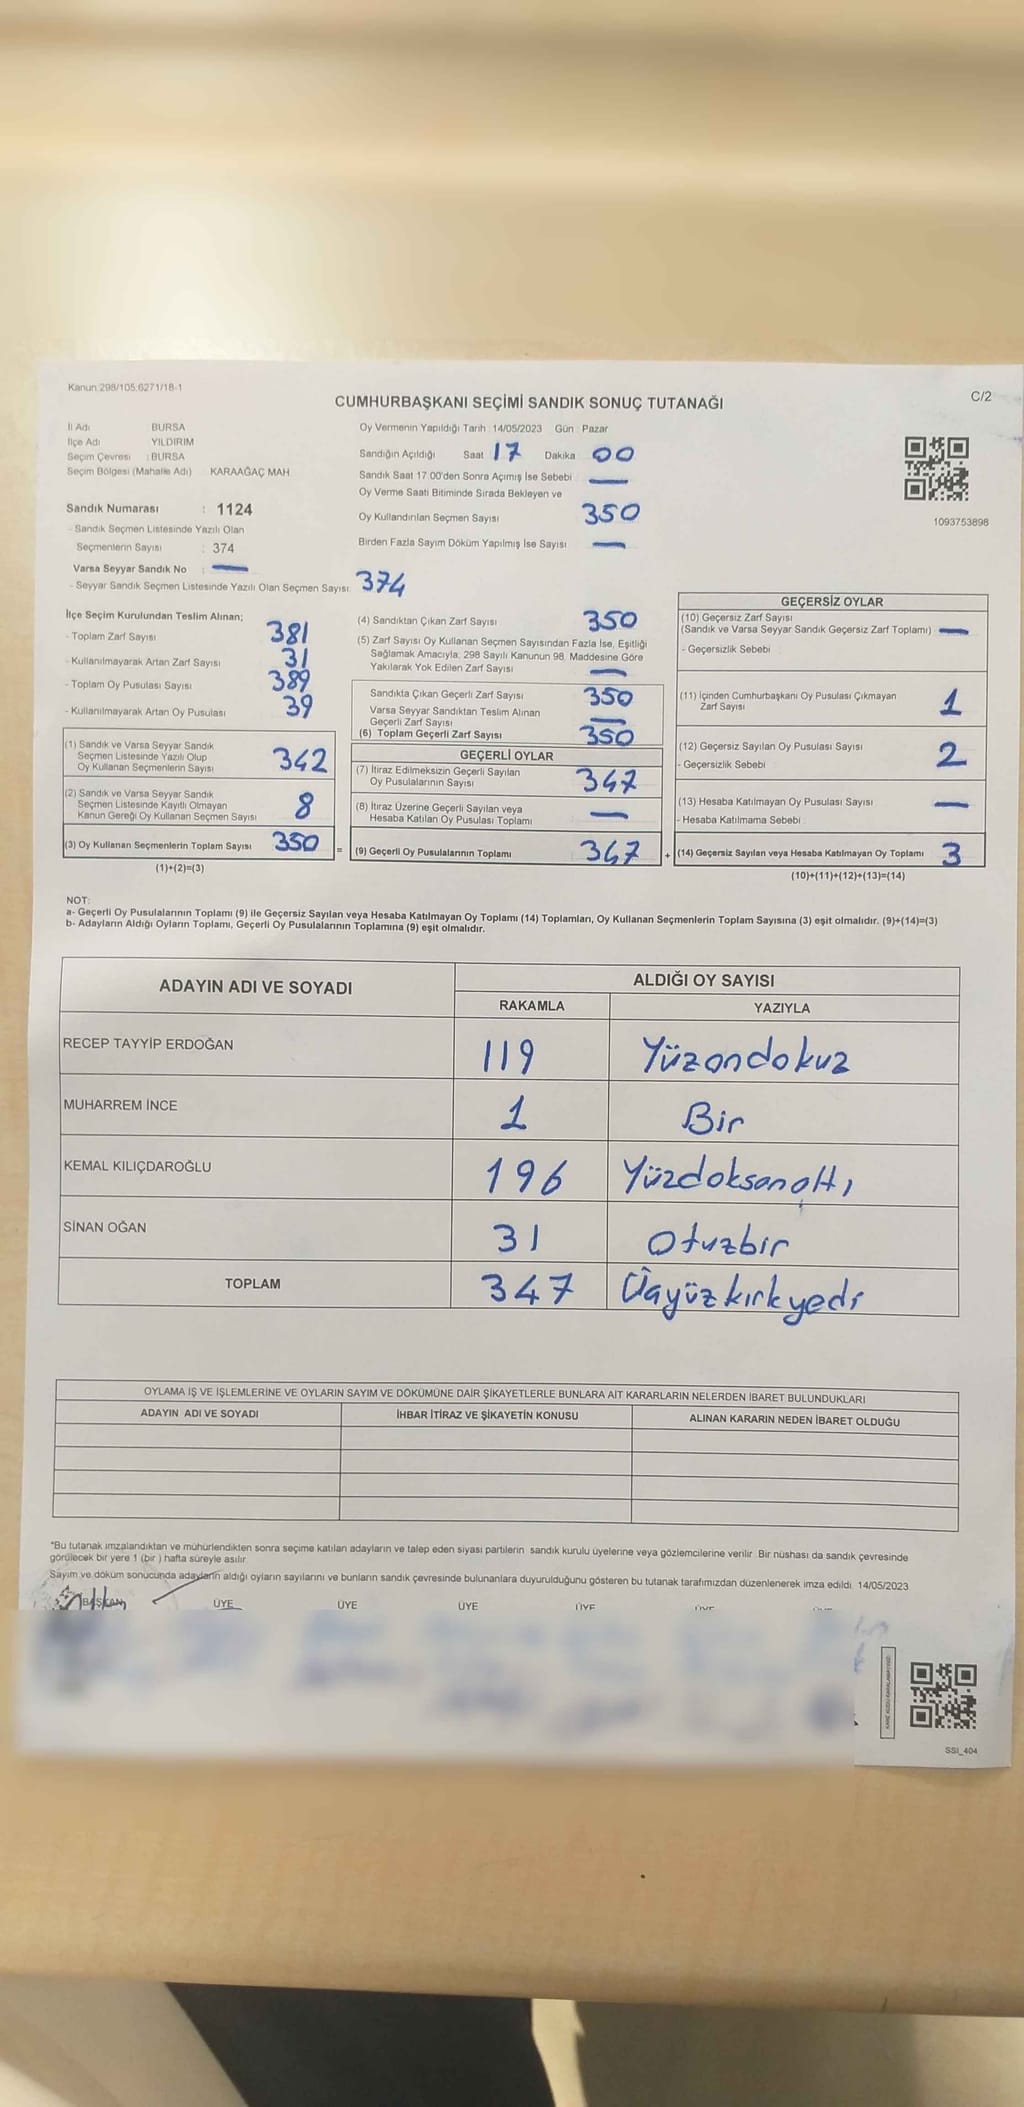 Kanun 298/105 6271/18-1
C/2
CUMHURBAŞKANI SEÇİMİ SANDIK SONUÇ TUTANAĞI
İl Adı : BURSA
İlçe Adı : YILDIRIM
Seçim Çevresi : BURSA
Seçim Bölgesi (Mahalle Adı) KARAAĞAÇ MAH.
Sandık Numarası : 1124
- Sandık Seçmen Listesinde Yazılı Olan
Seçmenlerin Sayısı : 374
Varsa Seyyar Sandık No : —
- Seyyar Sandık Seçmen Listesinde Yazılı Olan Seçmen Sayısı 374
Oy Vermenin Yapıldığı Tarih : 14/05/2023 Gün : Pazar
Sandığın Açıldığı Saat 17 Dakika 00
Sandık Saat 17:00'den Sonra Açımış İse Sebebi —
Oy Verme Saati Bitiminde Sırada Bekleyen ve
Oy Kullandırılan Seçmen Sayısı 350
Birden Fazla Sayım Döküm Yapılmış İse Sayısı —
1093753898
İlçe Seçim Kurulundan Teslim Alınan;
- Toplam Zarf Sayısı 381
- Kullanılmayarak Artan Zarf Sayısı 31
- Toplam Oy Pusulası Sayısı 389
- Kullanılmayarak Artan Oy Pusulası 39
(1) Sandık ve Varsa Seyyar Sandık
Seçmen Listesinde Yazılı Olup
Oy Kullanan Seçmenlerin Sayısı 342
(2) Sandık ve Varsa Seyyar Sandık
Seçmen Listesinde Kayıtlı Olmayan
Kanun Gereği Oy Kullanan Seçmen Sayısı 8
(3) Oy Kullanan Seçmenlerin Toplam Sayısı 350 =
(1)+(2)=(3)
(4) Sandıktan Çıkan Zarf Sayısı 350
(5) Zarf Sayısı Oy Kullanan Seçmen Sayısından Fazla İse, Eşitliği
Sağlamak Amacıyla; 298 Sayılı Kanunun 98. Maddesine Göre
Yakılarak Yok Edilen Zarf Sayısı —
Sandıkta Çıkan Geçerli Zarf Sayısı 350
Varsa Seyyar Sandıktan Teslim Alınan
Geçerli Zarf Sayısı —
(6) Toplam Geçerli Zarf Sayısı 350
GEÇERLİ OYLAR
(7) İtiraz Edilmeksizin Geçerli Sayılan
Oy Pusulalarının Sayısı 347
(8) İtiraz Üzerine Geçerli Sayılan veya
Hesaba Katılan Oy Pusulası Toplamı —
(9) Geçerli Oy Pusulalarının Toplamı 347 +
GEÇERSİZ OYLAR
(10) Geçersiz Zarf Sayısı
(Sandık ve Varsa Seyyar Sandık Geçersiz Zarf Toplamı) —
- Geçersizlik Sebebi
(11) İçinden Cumhurbaşkanı Oy Pusulası Çıkmayan
Zarf Sayısı 1
(12) Geçersiz Sayılan Oy Pusulası Sayısı 2
- Geçersizlik Sebebi :
(13) Hesaba Katılmayan Oy Pusulası Sayısı —
- Hesaba Katılmama Sebebi :
(14) Geçersiz Sayılan veya Hesaba Katılmayan Oy Toplamı 3
(10)+(11)+(12)+(13)=(14)
NOT:
a- Geçerli Oy Pusulalarının Toplamı (9) ile Geçersiz Sayılan veya Hesaba Katılmayan Oy Toplamı (14) Toplamları, Oy Kullanan Seçmenlerin Toplam Sayısına (3) eşit olmalıdır. (9)+(14)=(3)
b- Adayların Aldığı Oyların Toplamı, Geçerli Oy Pusulalarının Toplamına (9) eşit olmalıdır.
ADAYIN ADI VE SOYADI ALDIĞI OY SAYISI
RAKAMLA YAZIYLA
RECEP TAYYİP ERDOĞAN 119 Yüzondokuz
MUHARREM İNCE 1 Bir
KEMAL KILIÇDAROĞLU 196 Yüzdoksanaltı
SİNAN OĞAN 31 Otuzbir
TOPLAM 347 Üçyüzkırkyedi
OYLAMA İŞ VE İŞLEMLERİNE VE OYLARIN SAYIM VE DÖKÜMÜNE DAİR ŞİKAYETLERLE BUNLARA AİT KARARLARIN NELERDEN İBARET BULUNDUKLARI
ADAYIN ADI VE SOYADI İHBAR İTİRAZ VE ŞİKAYETİN KONUSU ALINAN KARARIN NEDEN İBARET OLDUĞU
*Bu tutanak imzalandıktan ve mühürlendikten sonra seçime katılan adayların ve talep eden siyasi partilerin sandık kurulu üyelerine veya gözlemcilerine verilir. Bir nüshası da sandık çevresinde
görülecek bir yere 1 (bir ) hafta süreyle asılır.
Sayım ve döküm sonucunda adayların aldığı oyların sayılarını ve bunların sandık çevresinde bulunanlara duyurulduğunu gösteren bu tutanak tarafımızdan düzenlenerek imza edildi. 14/05/2023
BAŞKAN ÜYE ÜYE ÜYE ÜYE
SSI_404